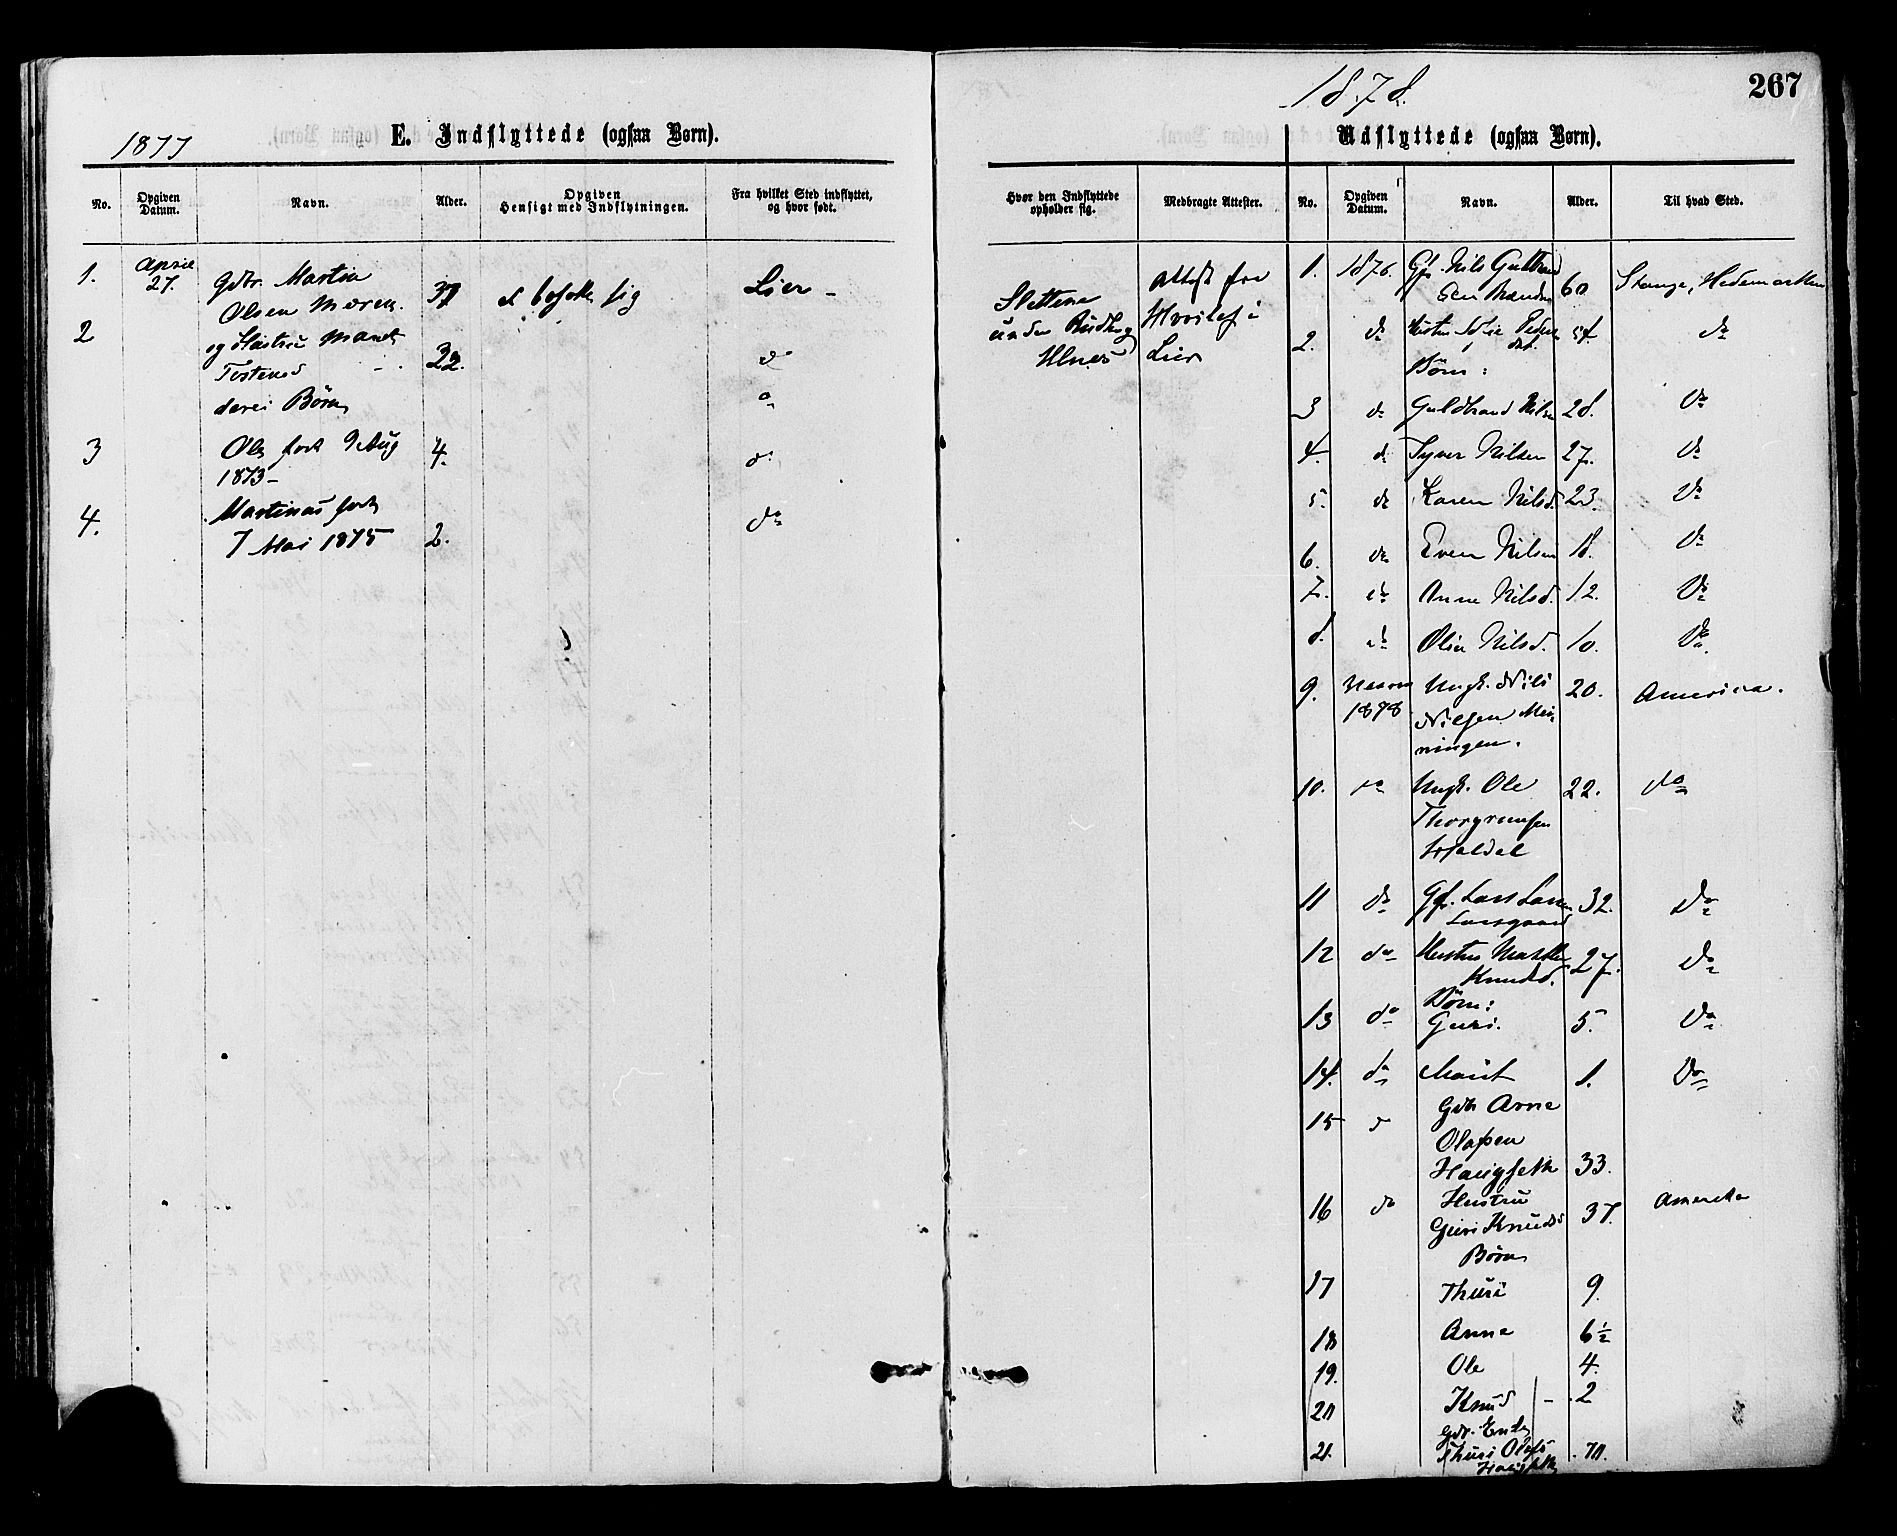 1877
E. Indflyttede (ogsaa Børn).
No.
Opgiven Datum.
Navn.
Alder.
Opgiven Hensigt med Indflytningen.
Fra hvilket Sted indflyttet, og hvor født.
1. April 27. Gdbr. Martin
Olsen Moren 37 Lier
2 og Hustru Marit
22. do
deres Børn
3 Ole født 9 Aug 4. do
1873
4. Martinus født do
7 Mai 1875 2.
1878.
267
Udflyttede (ogsaa Børn).
Hvor den Indflyttede opholder sig.
Medbragte Attester.
No.
Opgiven Datum.
Navn.
Alder.
Til hvad Sted.
Slettene
under
Ulnes
Attest fra
i
Lier
1. 1876. Nils Guldbrand
60 Stange, Hedemarken
2. do Pedersdat. do
Børn:
3 do Guldbrand Nilsen 28. Do
4. do Syver Nilsen 27. Do
5. do Karen Nilsd. 23. Do
6. do Even Nilsen 18. Do
7. do Anne Nilsd. 12. Do
8. do Olia Nilsd. 10. Do
9. 1878 Ungk. Nils 20. America.
Nilsen
10. do Ungk. Ole 22. do
Thorgrimsen
11 do Lars Larsen 32. Do
12 do Hustru
Knudsd. 27. Do
Børn:
13 do Guri. 5. Do
14. do Marit 1. Do
15 do Gdbr Arne
Olafsen
Haugseth 33.
16 do Hustru Amerika
Guri Knudsd 37.
Børn
17 Thuri 9.
18 Anne 6½
19. Ole 4.
20 Knud - 2
21. Gdbr. Enke
Thuri Olafs 70.
Haugseth